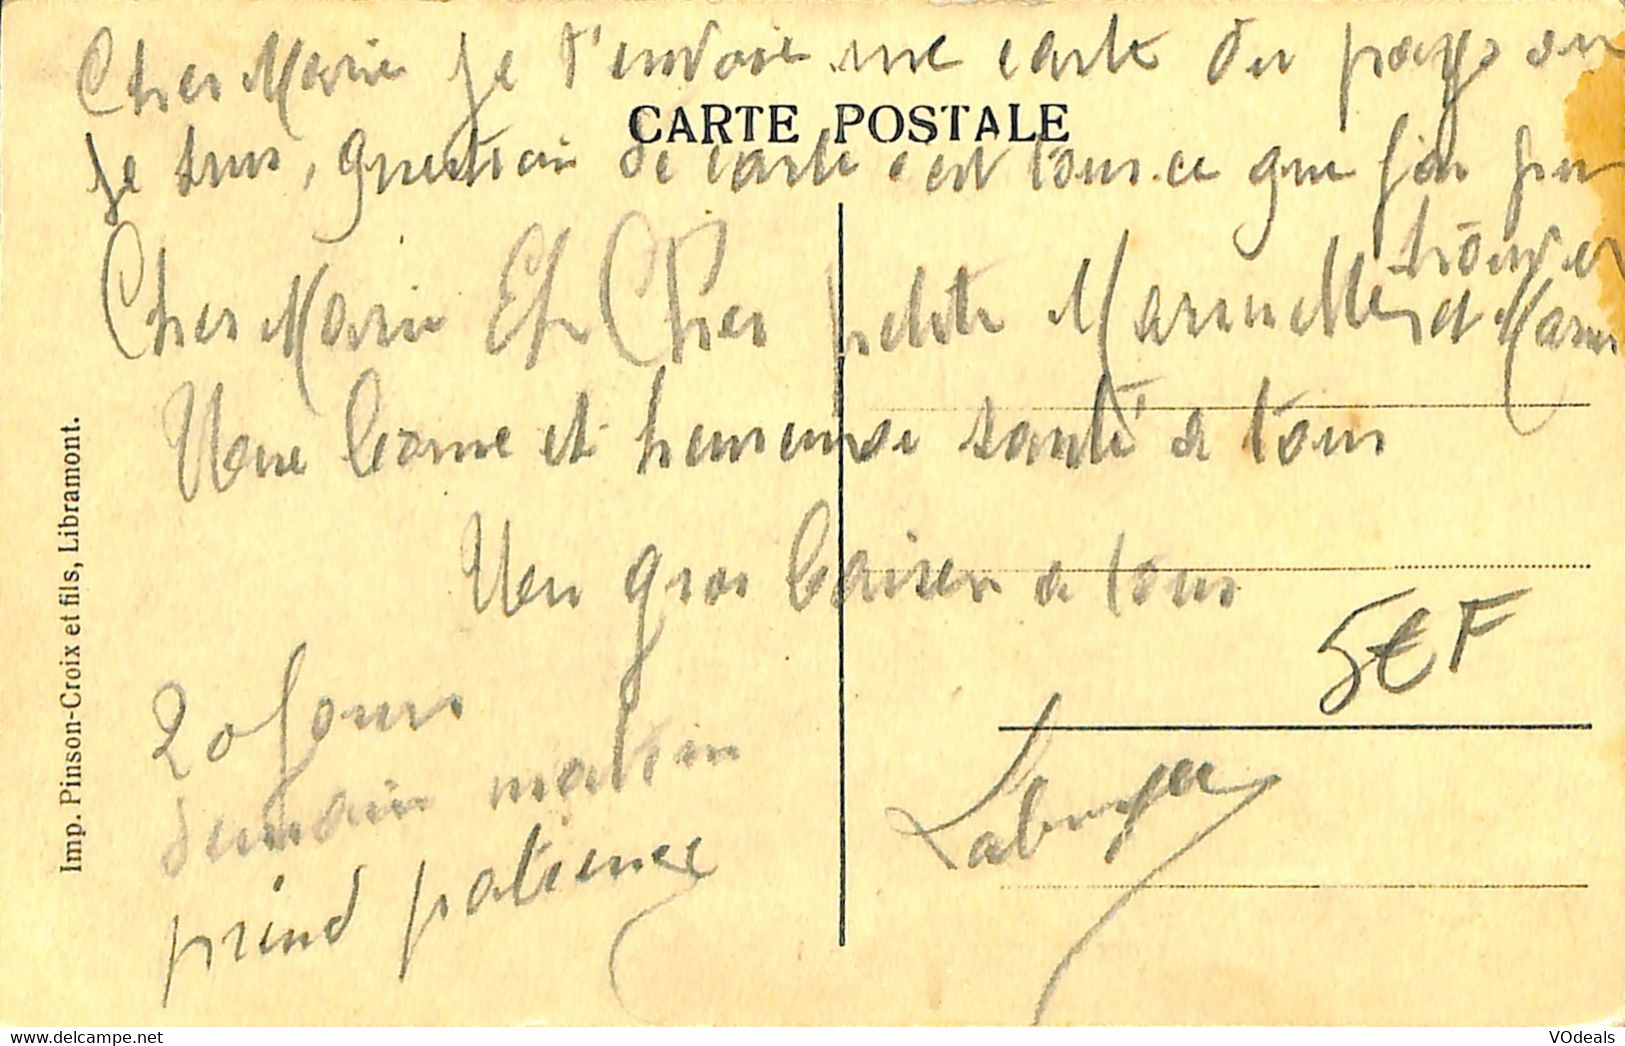 Cher Marie je t'envoie une carte du pays ou
CARTE POSTALE
je suis, question de carte c'est tous ce que j'ai pu
trouver
Cher Marie Et Cher petite Marcelle et
Une bonne et heureuse santé a tous
Un gros baiser a tous
5€ F
20 jours
demain matin
prend patience
Imp. Pinson-Croix et fils, Libramont.
VOdeals